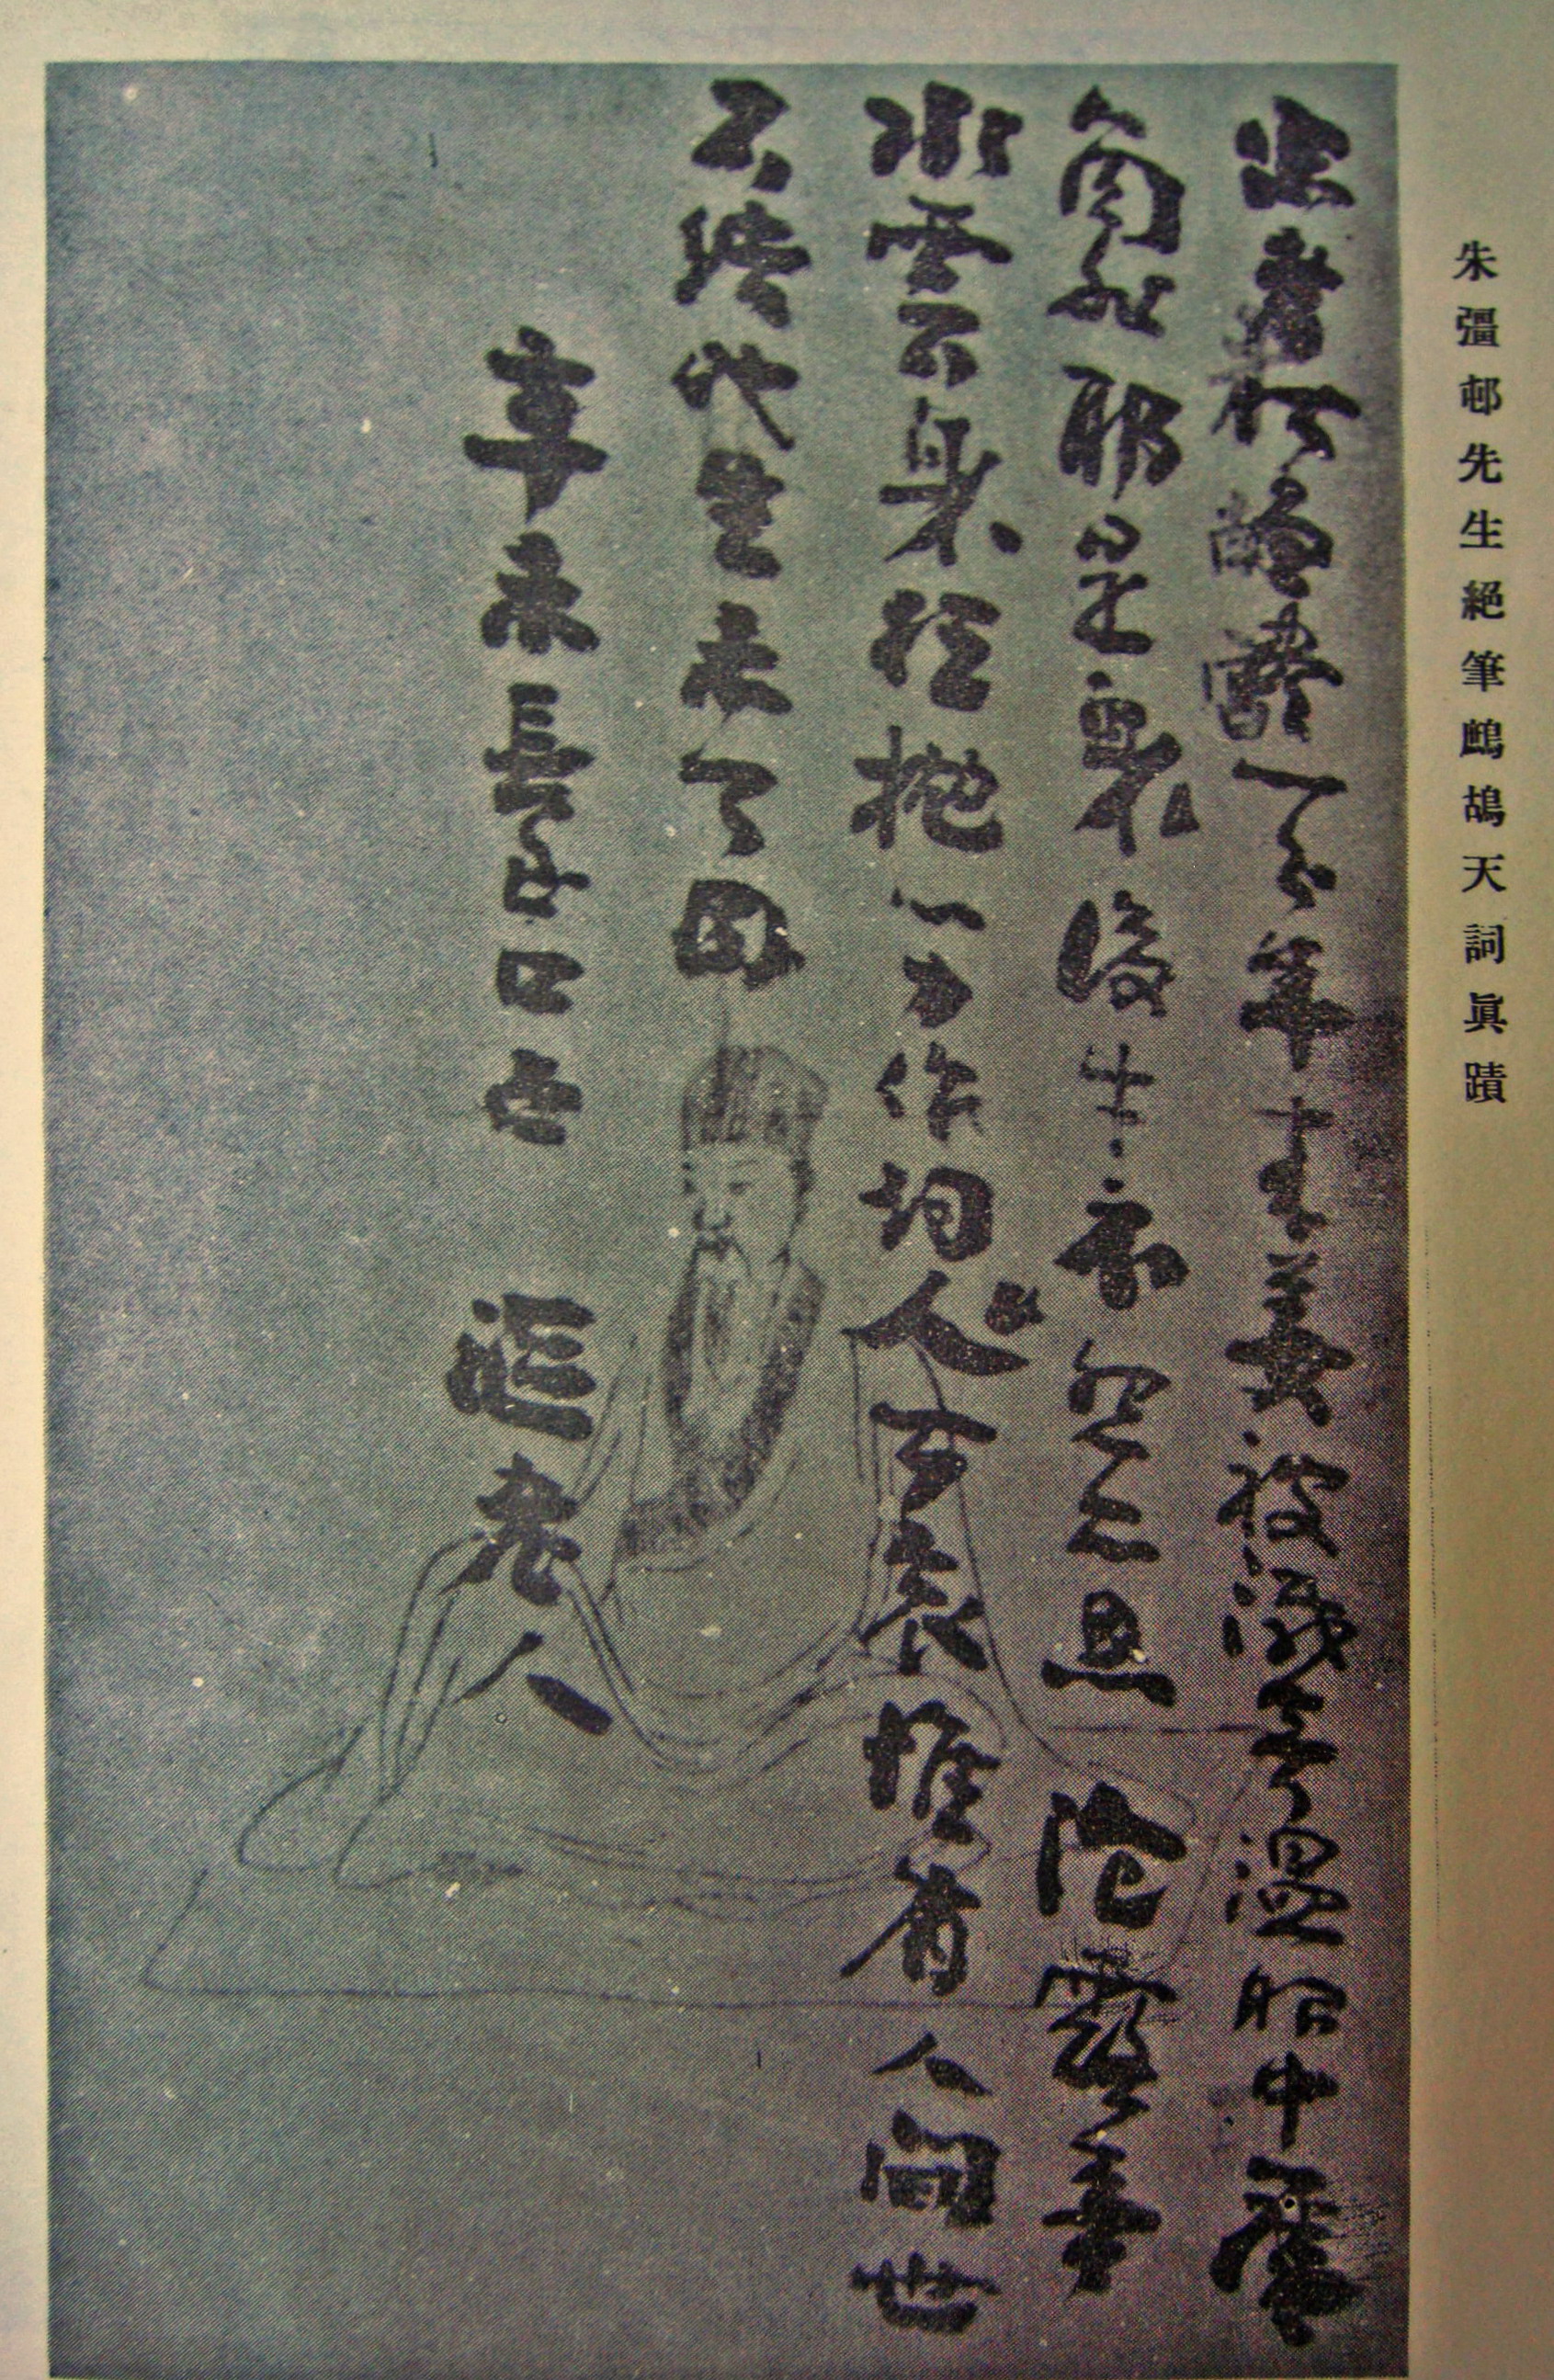 朱彊邨先生絕筆鷓鴣天詞眞蹟
忠孝何曾盡一分年來姜被減奇溫眼中犀
角非耶是身後牛衣怨亦恩 泡露事
水雲身枉拋心力作詞人可哀惟有人間世
不結他生未了因
辛未長至口占 老人